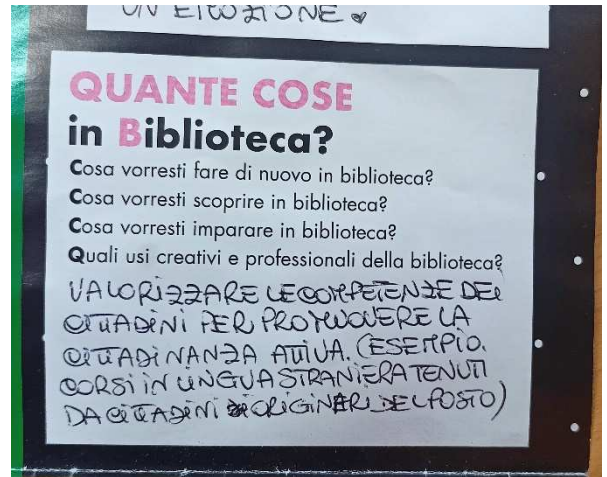 UN EMOZIONE
QUANTE COSE
in Biblioteca?
Cosa vorresti fare di nuovo in biblioteca?
Cosa vorresti scoprire in biblioteca?
Cosa vorresti imparare in biblioteca?
Quali usi creativi e professionali della biblioteca?
VALORIZZARE LE COMPETENZE DEI
CITTADINI PER PROMUOVERE LA
CITTADINANZA ATTIVA. (ESEMPIO.
CORSI IN LINGUA STRANIERA TENUTI
DA CITTADINI ORIGINARI DEL POSTO)